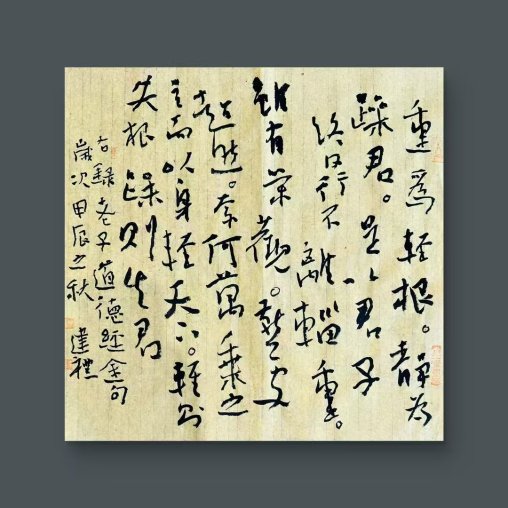 重爲輕根。靜爲
躁君。是以君子
終日行不離輜重。
雖有榮觀。燕處
超然。奈何萬乘之
主而以身輕天下。輕則
失根 躁則失君
右錄老子道德經金句
歲次甲辰之秋 達禮